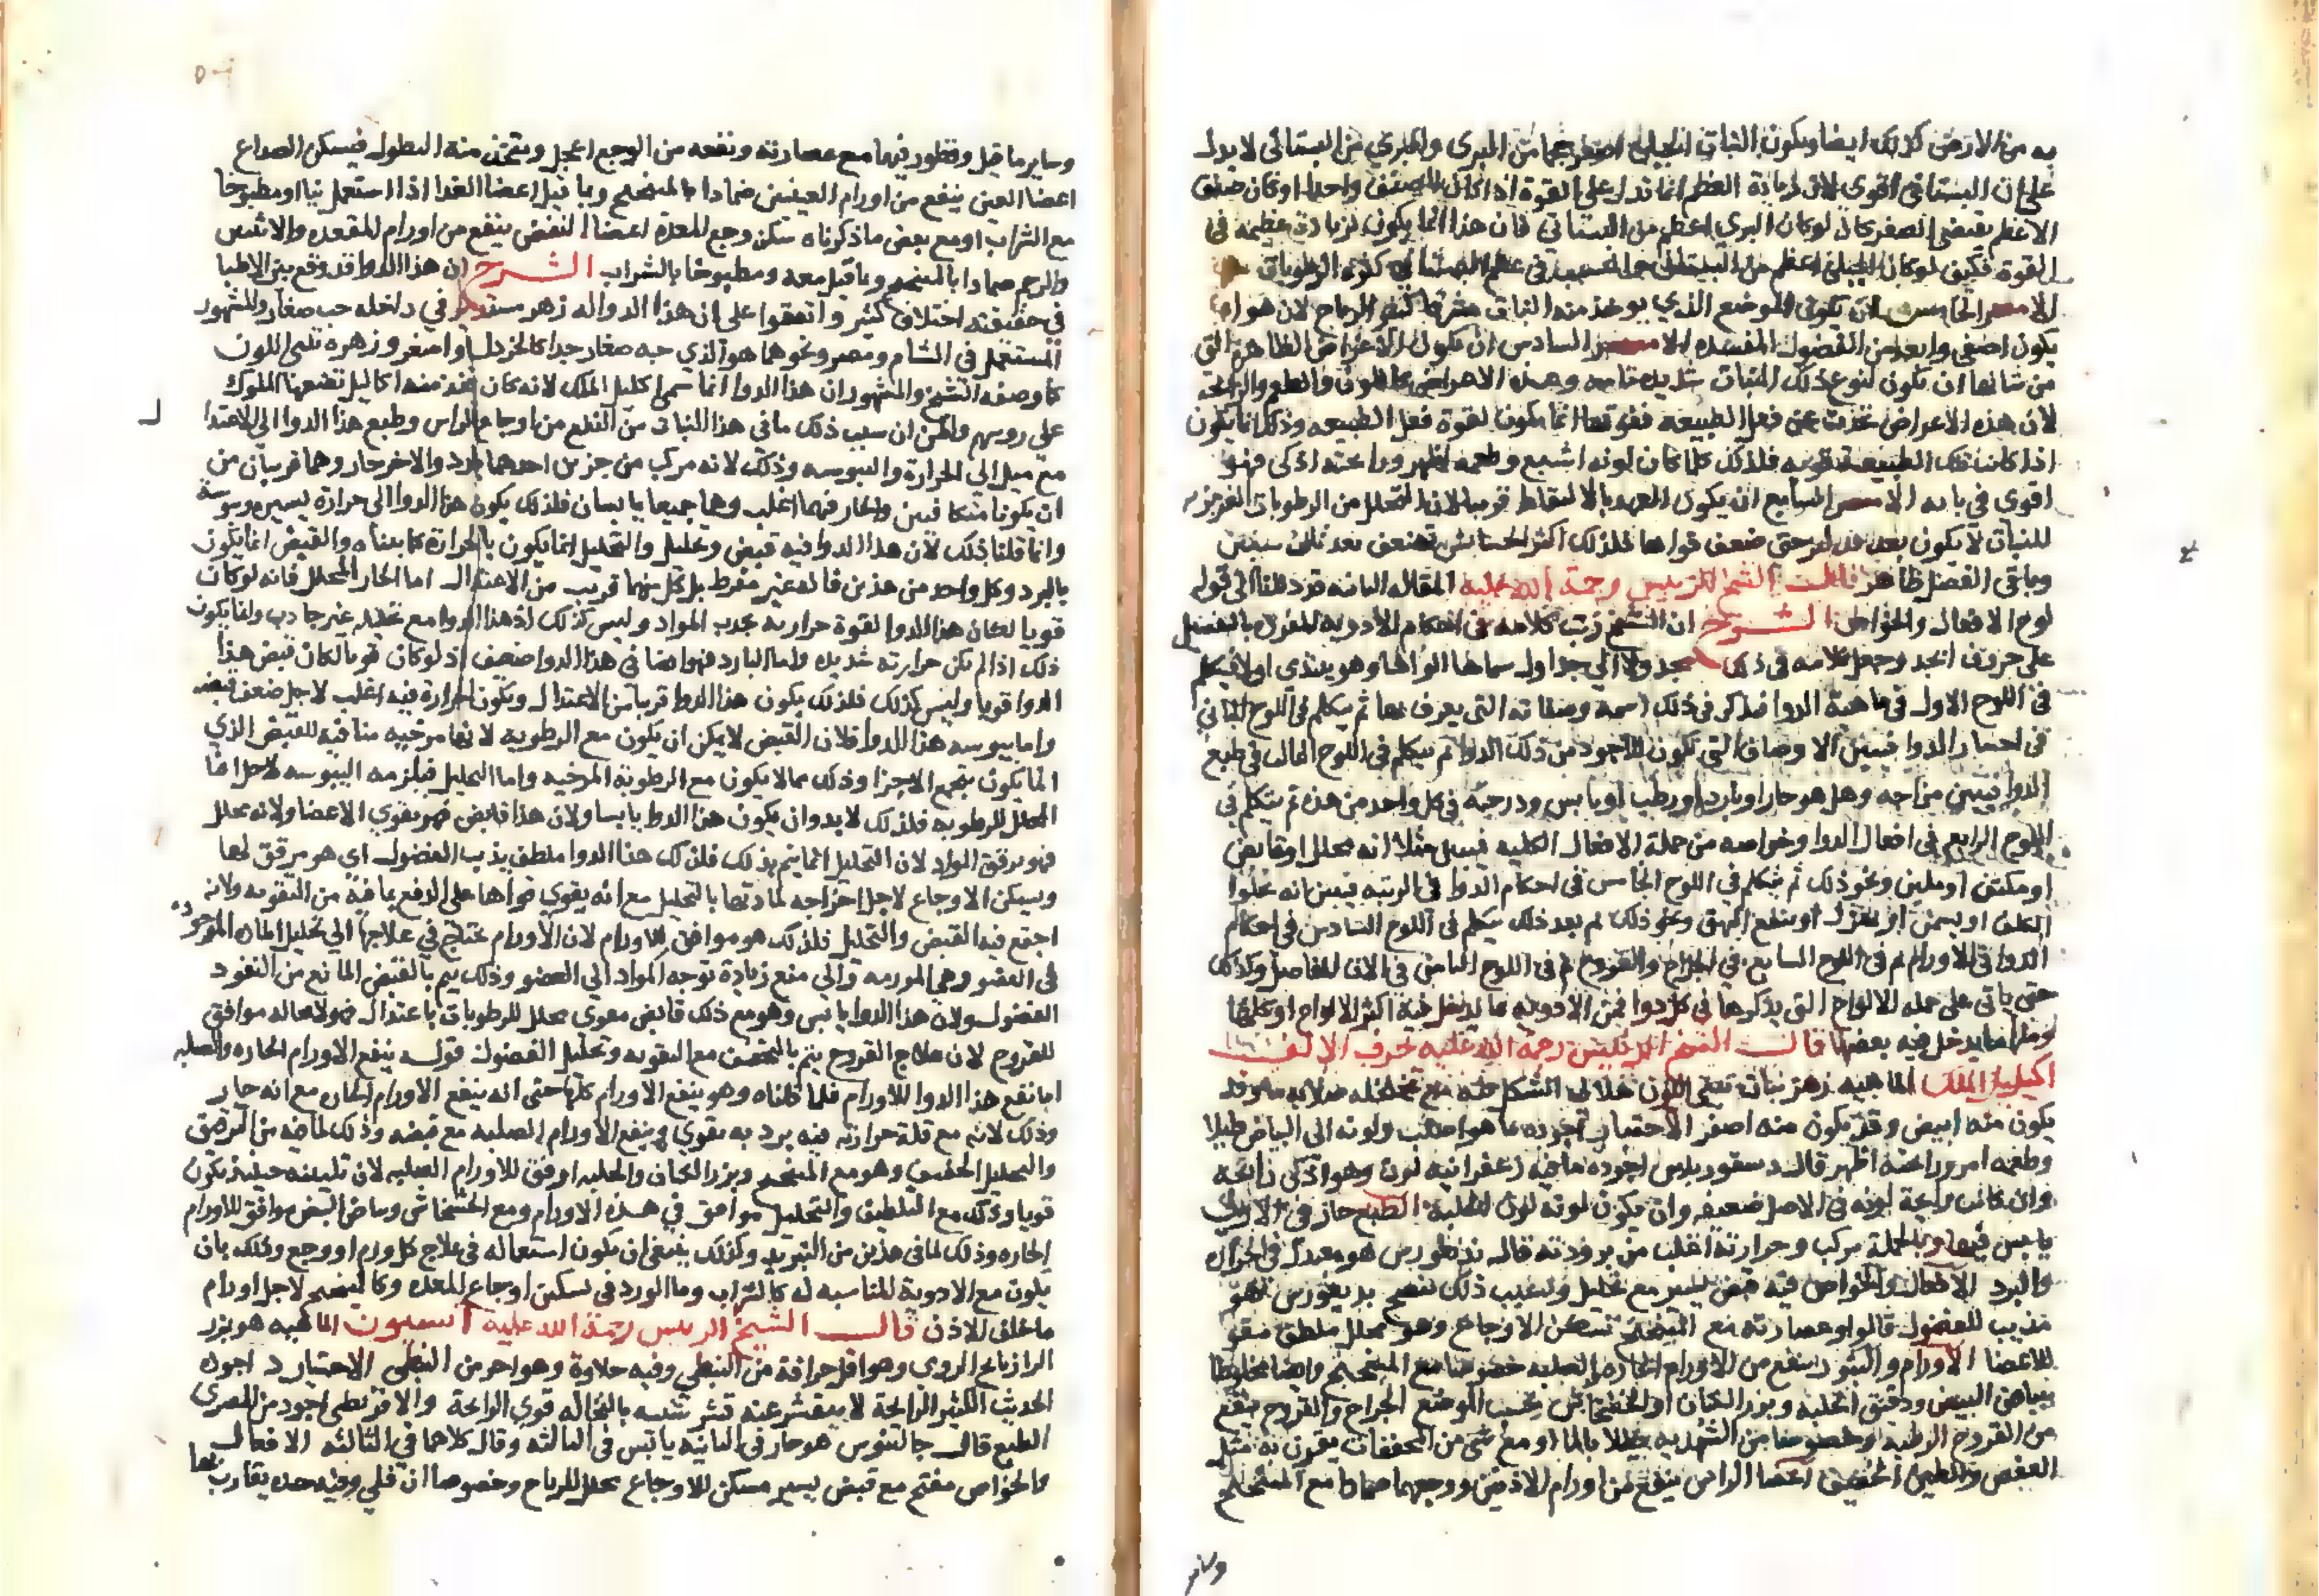 به من الارض كذلك ايضا ويكون النبات الجبلي اصغر حجما من البري والبري من البستاني لا يدل
على ان البستاني اقوى لان زيادة العظم انما تدل على القوة اذا كان الصنف واحدا او كان صنف
الاعظم يقتضي الصغر كما لو كان البري اعظم من البستاني فان هذا انما يكون لزيادة عظيمة في
القوة فكيف لو كان الجبلي اعظم من البستاني السبب في عظم البستاني كثرة الرطوبات
الامر الخامس ان يكون الموضع الذي يوخذ منه النبات مشرقا كثير الرياح لان هواه
يكون اصفى وابعد من الفضول المفسده الامر السادس ان يكون الاعراض الظاهرة التي
من شانها ان تكون لنوع ذلك النبات شديده تامه وهذه الاعراض كاللون والطعم والرائحة
لان هذه الاعراض تحدث عن فعل الطبيعه فقوتها انما يكون لقوة فعل الطبيعه وذلك انما يكون
اذا كانت تلك الطبيعة قويه فلذلك كلما كان لونه اشبع وطعمه اظهر ورائحته اذكى فهو
اقوى في بابه الامر السابع ان يكون العهد بالالتقاط قريبا لان المتحلل من الرطوبات الغريزيه
للنبات لا يكون بعد حتى ضعف قواها فلذلك اكثر الحشائش تضعف بعد ثلث سنين
وباقي الفصل ظاهر قال الشيخ الرئيس رحمة الله عليه المقاله الثانيه الى قوله
لوح الافعال والخواص الشرح ان الشيخ رتب كلامه في احكام الادويه المفرده بالتفصيل
على حروف ابجد وجعل كلامه في ذلك مجدولا الى جداول سماها الواحا وهو يبتدي اولا فيتكلم
في اللوح الاول في ماهية الدوا فيذكر في ذلك اسمه وصفاته التي يعرف بها ثم يتكلم في اللوح الثاني
في اختيار الدوا فيبين الاوصاف التي تكون للاجود من ذلك الدوا ثم يتكلم في اللوح الثالث في طبع
الدوا فيبين مزاجه وهل هو حار او بارد او رطب او يابس ودرجته في كل واحد من هذه ثم يتكلم في
اللوح الرابع في افعال الدوا وخواصه من جملة الافعال الكليه فيبين مثلا انه محلل او قابض
او مكثف او ملين ونحو ذلك ثم يتكلم في اللوح الخامس في احكام الدوا في الزينه فيبين انه يجلوا
الكلف او يسمن او يهزل او ينفع البهق ونحو ذلك ثم بعد ذلك يتكلم في اللوح السادس في احكام
الدوا في الاورام ثم في اللوح السابع في الجراح والقروح ثم في اللوح الثامن في الات المفاصل وكذلك
حتى ياتي على جمله الالواح التي يذكرها في كل دوا فمن الادويه ما يدخل فيه اكثر الالواح او كلها
ومنها ما يدخل فيه بعضها قال الشيخ الرئيس رحمة الله عليه حرف الالف
اكليل الملك الماهيه زهر نبات تبني اللون هلالي الشكل فيه مع تخلخله صلابه ما وقد
يكون منه ابيض وقد يكون منه اصفر الاختيار اجوده ما هو اصلب ولونه الى البياض قليلا
وطعمه امر ورائحته اظهر قال ديسقوريدوس اجوده ما فيه زعفرانية لون وهو اذكى رائحة
وان كانت رائحة لونه في الاصل ضعيفه وان يكون لونه لون الحلبة الطبع حار في الاولى
يابس فيها وبالجملة مركب وحرارته اغلب من برودته قال بديغورس هو معتدل في الحرارة
والبرد الافعال والخواص فيه قبض يسير مع تحليل وبسبب ذلك ينضج بديغورس هو
مذيب للفضول قالوا وعصارته مع الميبختج تسكن الاوجاع وهو محلل ملطف مقو
للاعضا الاورام والبثور ينفع من الاورام الحاره والصلبه خصوصا مع الميبختج وايضا مخلوطا
ببياض البيض ودقيق الحلبة وبزر الكتان او الخشخاش بحسب الموضع الجراح والقروح ينفع
من القروح الرطبه وخصوصا من الشهديه طلا بالما او مع شي من المجففات يقرن به مثل
العفص والطين الخفيف اعضا الراس ينفع من اورام الاذنين ووجعهما ضمادا مع الميبختج
وساير
وساير ما قيل وقطور فيهما مع عصارته ونفعه من الوجع اعجل ويتخذ منه النطول فيسكن الصداع
اعضا العين ينفع من اورام العينين ضمادا بالميبختج وبما قيل اعضا الغدا اذا استعمل نيا او مطبوخا
مع الشراب او مع بعض ما ذكرناه سكن وجع المعدة اعضا النفض ينفع من اورام المقعده والانثيين
والرحم ضمادا بالميبختج وبما قيل معه ومطبوخا بالشراب الشرح ان هذا الدوا قد وقع بين الاطبا
في حقيقته اختلاف كثير واتفقوا على ان هذا الدوا له زهر مستدير في داخله حب صغار والمشهور
المستعمل في الشام ومصر ونحوهما هو الذي حبه صغار جدا كالخردل او اصغر وزهره تبني اللون
كما وصفه الشيخ والمشهور ان هذا الدوا انما سمي اكليل الملك لانه كان يتخذ منه اكاليل تضعها الملوك
على روسهم ولكن ان سبب ذلك ما في هذا النبات من النفع من اوجاع الراس وطبع هذا الدوا الى الاعتدا
مع ميل الى الحرارة واليبوسه وذلك لانه مركب من جزين احدهما بارد والاخر حار وهما قريبان من
ان يكونا متكافيين والحار فيهما اغلب وهما جميعا يابسان فلذلك يكون هذا الدوا الى حرارة يسيره ويبوسة
وانما قلنا ذلك لان هذا الدوا فيه قبض وتحليل والتحليل انما يكون بالحرارة كما بيناه والقبض انما يكون
بالبرد وكل واحد من هذين فانه غير مفرط بل كل منهما قريب من الاعتدال اما الحار المحلل فانه لو كان
قويا لكان هذا الدوا لقوة حرارته يجذب المواد وليس كذلك اذ هذا الدوا مع تحليله غير جاذب وانما يكون
ذلك اذا لم يكن حرارته شديده واما البارد فهو ايضا في هذا الدوا ضعيف اذ لو كان قويا لكان قبض هذا
الدوا قويا وليس كذلك فلذلك يكون هذا الدوا قريبا من الاعتدال ويكون الحرارة فيه اغلب لاجل ضعف قبضه
واما يبوسه هذا الدوا فلان القبض لا يمكن ان يكون مع الرطوبه لانها مرخيه منافيه للقبض الذي
انما يكون بتجمع الاجزا وذلك مما لا يكون مع الرطوبة المرخيه واما التحليل فيلزمه اليبوسه لاجل افنا
المحلل للرطوبه فلذلك لا بد وان يكون هذا الدوا يابسا ولان هذا قابض فهو يقوي الاعضا ولانه محلل
فهو يرقق المواد لان التحليل انما يتم بذلك فلذلك هذا الدوا ملطف يذيب الفضول اي هو مرقق لها
ويسكن الاوجاع لاجل اخراجه لمادتها بالتحليل مع انه يقوي قواها على الدفع بما فيه من التقويه ولانه
اجتمع فيه القبض والتحليل فلذلك هو موافق للاورام لان الاورام يحتاج في علاجها الى تحليل الماده الموجوده
في العضو وهي المورمه والى منع زيادة توجه المواد الى العضو وذلك يتم بالقبض المانع من النفوذ
الفضول ولان هذا الدوا يابس وهو مع ذلك قابض مقوي محلل للرطوبات باعتدال فهو لا محاله موافق
للقروح لان علاج القروح يتم بالتجفيف مع التقويه وتحليل الفضول قوله ينفع الاورام الحاره والصلبه
اما نفع هذا الدوا للاورام فلما قلناه وهو ينفع الاورام كلها حتى انه ينفع الاورام الحاره مع انه حار
وذلك لانه مع قلة حرارته فيه برد به يقوي وينفع الاورام الصلبه مع قبضه وذلك لما فيه من الترقيق
والتحليل الخفيف وهو مع الميبختج وبزر الكتان والحلبه اوفق للاورام الصلبه لان تليينه حينئذ يكون
قويا وذلك مع التلطيف والتحليل موافق في هذه الاورام ومع الخشخاش وبياض البيض موافق للاورام
الحاره وذلك لما في هذين من التبريد وكذلك ينبغي ان يكون استعماله في علاج كل ورم او وجع وذلك بان
يكون مع الادوية المناسبه له كالشراب وما الورد في تسكين اوجاع المعده وكالميبختج لاجل اورام
ما خلف الاذن قال الشيخ الرئيس رحمة الله عليه انيسون الماهيه هو بزر
الرازيانج الرومي وهو اقل حرافة من النبطي وفيه حلاوة وهو احر من النبطي الاختيار اجوده
الحديث الكثير الرائحة لا يتقشر عنه قشر شبيه بالنخاله قوي الرائحة والاقريطي اجود من المصري
الطبع قال جالينوس هو حار في الثانيه يابس في الثالثه وقال كلاهما في الثالثه الافعال
والخواص مفتح مع قبض يسير مسكن للاوجاع محلل للرياح وخصوصا ان قلي وفيه حده يقارب بها